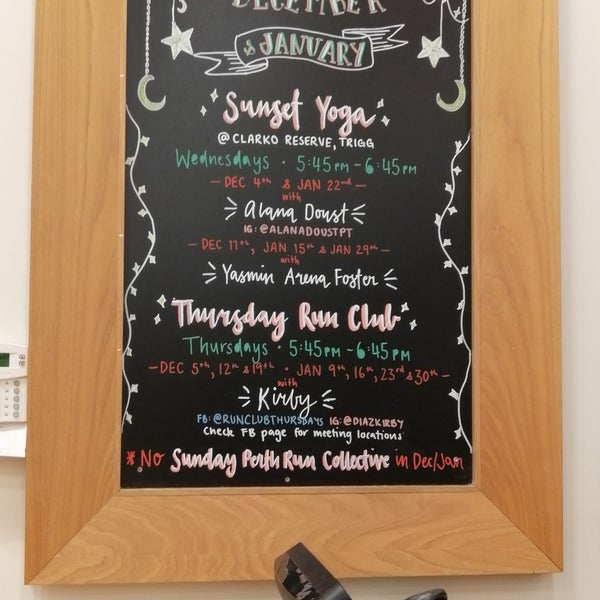 DECEMBER
& JANUARY
Sunset Yoga
@ CLARKO RESERVE, TRIGG
Wednesdays · 5:45PM - 6:45PM
- DEC 4th & JAN 22nd -
with
Alana Doust
IG: @ALANADOUSTPT
- DEC 11th, JAN 15th & JAN 29th -
with
Yasmin Arena Foster
Thursday Run Club
Thursdays · 5:45PM - 6:45PM
- DEC 5th, 12th & 19th · JAN 9th, 16th, 23rd & 30th -
with
Kirby
FB: @RUNCLUBTHURSDAYS IG: @DIAZKIRBY
check FB page for meeting locations
* No Sunday Perth Run Collective in Dec/Jan